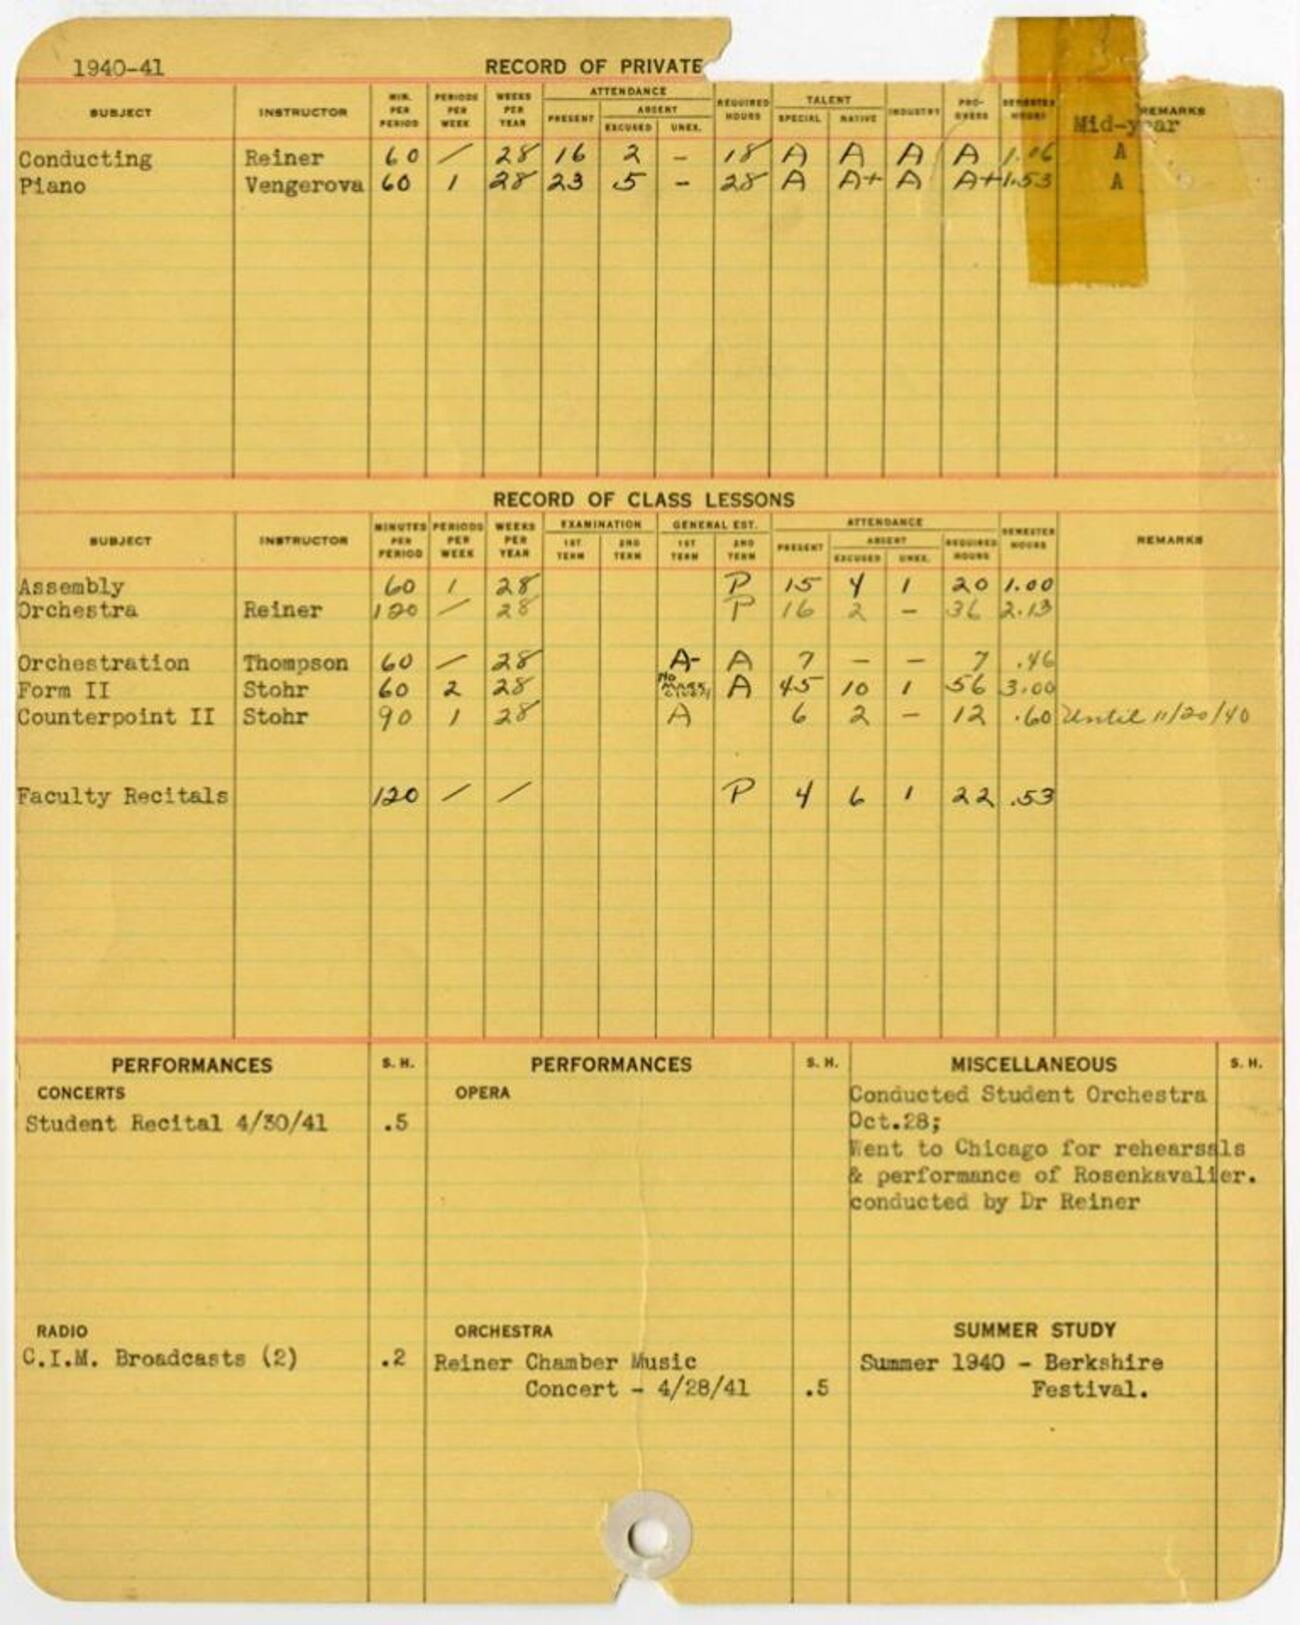 1940-41
RECORD OF PRIVATE
SUBJECT INSTRUCTOR MIN. PER PERIOD PERIODS PER WEEK WEEKS PER YEAR ATTENDANCE PRESENT ABSENT EXCUSED UNEX. REQUIRED HOURS TALENT SPECIAL NATIVE INDUSTRY PRO- GRESS SEMESTER HOURS REMARKS
Mid-year
Conducting Reiner 60 / 28 16 2 - 18 A A A A 1.06 A
Piano Vengerova 60 1 28 23 5 - 28 A A+ A A+ 1.53 A
RECORD OF CLASS LESSONS
SUBJECT INSTRUCTOR MINUTES PER PERIOD PERIODS PER WEEK WEEKS PER YEAR EXAMINATION 1ST TERM 2ND TERM GENERAL EST. 1ST TERM 2ND TERM ATTENDANCE PRESENT ABSENT EXCUSED UNEX. REQUIRED HOURS SEMESTER HOURS REMARKS
Assembly 60 1 28 P 15 4 1 20 1.00
Orchestra Reiner 120 / 28 P 16 2 - 36 2.13
Orchestration Thompson 60 / 28 A- A 7 - - 7 .46
Form II Stohr 60 2 28 No Mark Given A 45 10 1 56 3.00
Counterpoint II Stohr 90 1 28 A 6 2 - 12 .60 Until 11/20/40
Faculty Recitals 120 / / P 4 6 1 22 .53
PERFORMANCES S. H. PERFORMANCES S. H. MISCELLANEOUS S. H.
CONCERTS
Student Recital 4/30/41 .5
OPERA
Conducted Student Orchestra
Oct.28;
Went to Chicago for rehearsals
& performance of Rosenkavalier.
conducted by Dr Reiner
RADIO
C.I.M. Broadcasts (2) .2
ORCHESTRA
Reiner Chamber Music
Concert - 4/28/41 .5
SUMMER STUDY
Summer 1940 - Berkshire
Festival.